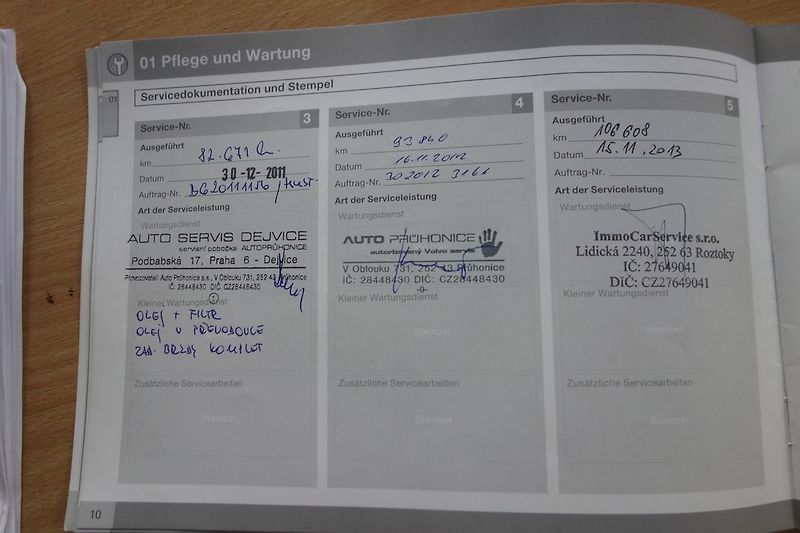 01 Pflege und Wartung
01
Servicedokumentation und Stempel
Service-Nr. 3
Ausgeführt
km 82.671
Datum 30-12-2011
Auftrag-Nr.
Art der Serviceleistung
Wartungsdienst
AUTO SERVIS DEJVICE
servisní pobočka AUTOPRŮHONICE
Podbabská 17, Praha 6 - Dejvice
Provozovatel: Auto Průhonice a.s., V Oblouku 731, 252 43 Průhonice
IČ: 28448430 DIČ: CZ28448430
1
Kleiner Wartungsdienst
OLEJ + FILTR
OLEJ V PŘEVODOVCE
ZAD. BRZDY KOMPLET
Zusätzliche Servicearbeiten
Stempel
Service-Nr. 4
Ausgeführt
km 93840
Datum 16.11.2012
Auftrag-Nr. 302012 3161
Art der Serviceleistung
Wartungsdienst
AUTO PRŮHONICE
autorizovaný Volvo servis
V Oblouku 731, 252 43 Průhonice
IČ: 28448430 DIČ: CZ28448430
-9-
Kleiner Wartungsdienst
Stempel
Zusätzliche Servicearbeiten
Stempel
Service-Nr. 5
Ausgeführt
km 106608
Datum 15.11.2013
Auftrag-Nr.
Art der Serviceleistung
Wartungsdienst
ImmoCarService s.r.o.
Lidická 2240, 252 63 Roztoky
IČ: 27649041
DIČ: CZ27649041
Kleiner Wartungsdienst
Stempel
Zusätzliche Servicearbeiten
Stempel
10